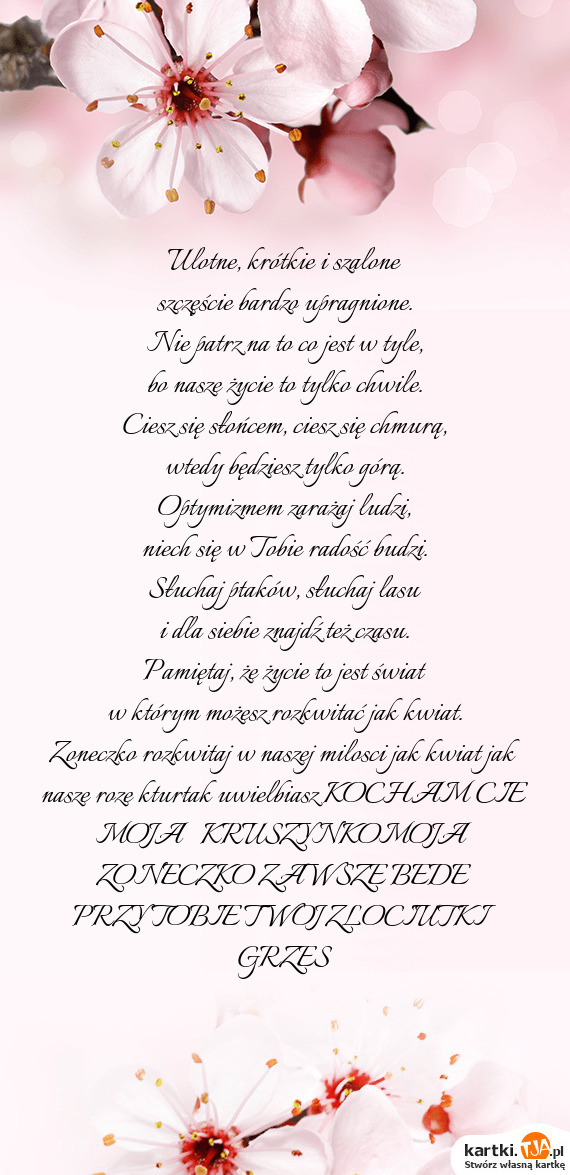 Ulotne, krótkie i szalone
szczęście bardzo upragnione.
Nie patrz na to co jest w tyle,
bo nasze życie to tylko chwile.
Ciesz się słońcem, ciesz się chmurą,
wtedy będziesz tylko górą.
Optymizmem zarażaj ludzi,
niech się w Tobie radość budzi.
Słuchaj ptaków, słuchaj lasu
i dla siebie znajdź też czasu.
Pamiętaj, że życie to jest świat
w którym możesz rozkwitać jak kwiat.
Zoneczko rozkwitaj w naszej milosci jak kwiat jak
nasze roze kturtak uwielbiasz KOCHAM CIE
MOJA KRUSZYNKO MOJA
ZONECZKO ZAWSZE BEDE
PRZY TOBIE TWOJ ZLOCIUTKI
GRZES
kartki.TJA.pl
Stwórz własną kartkę